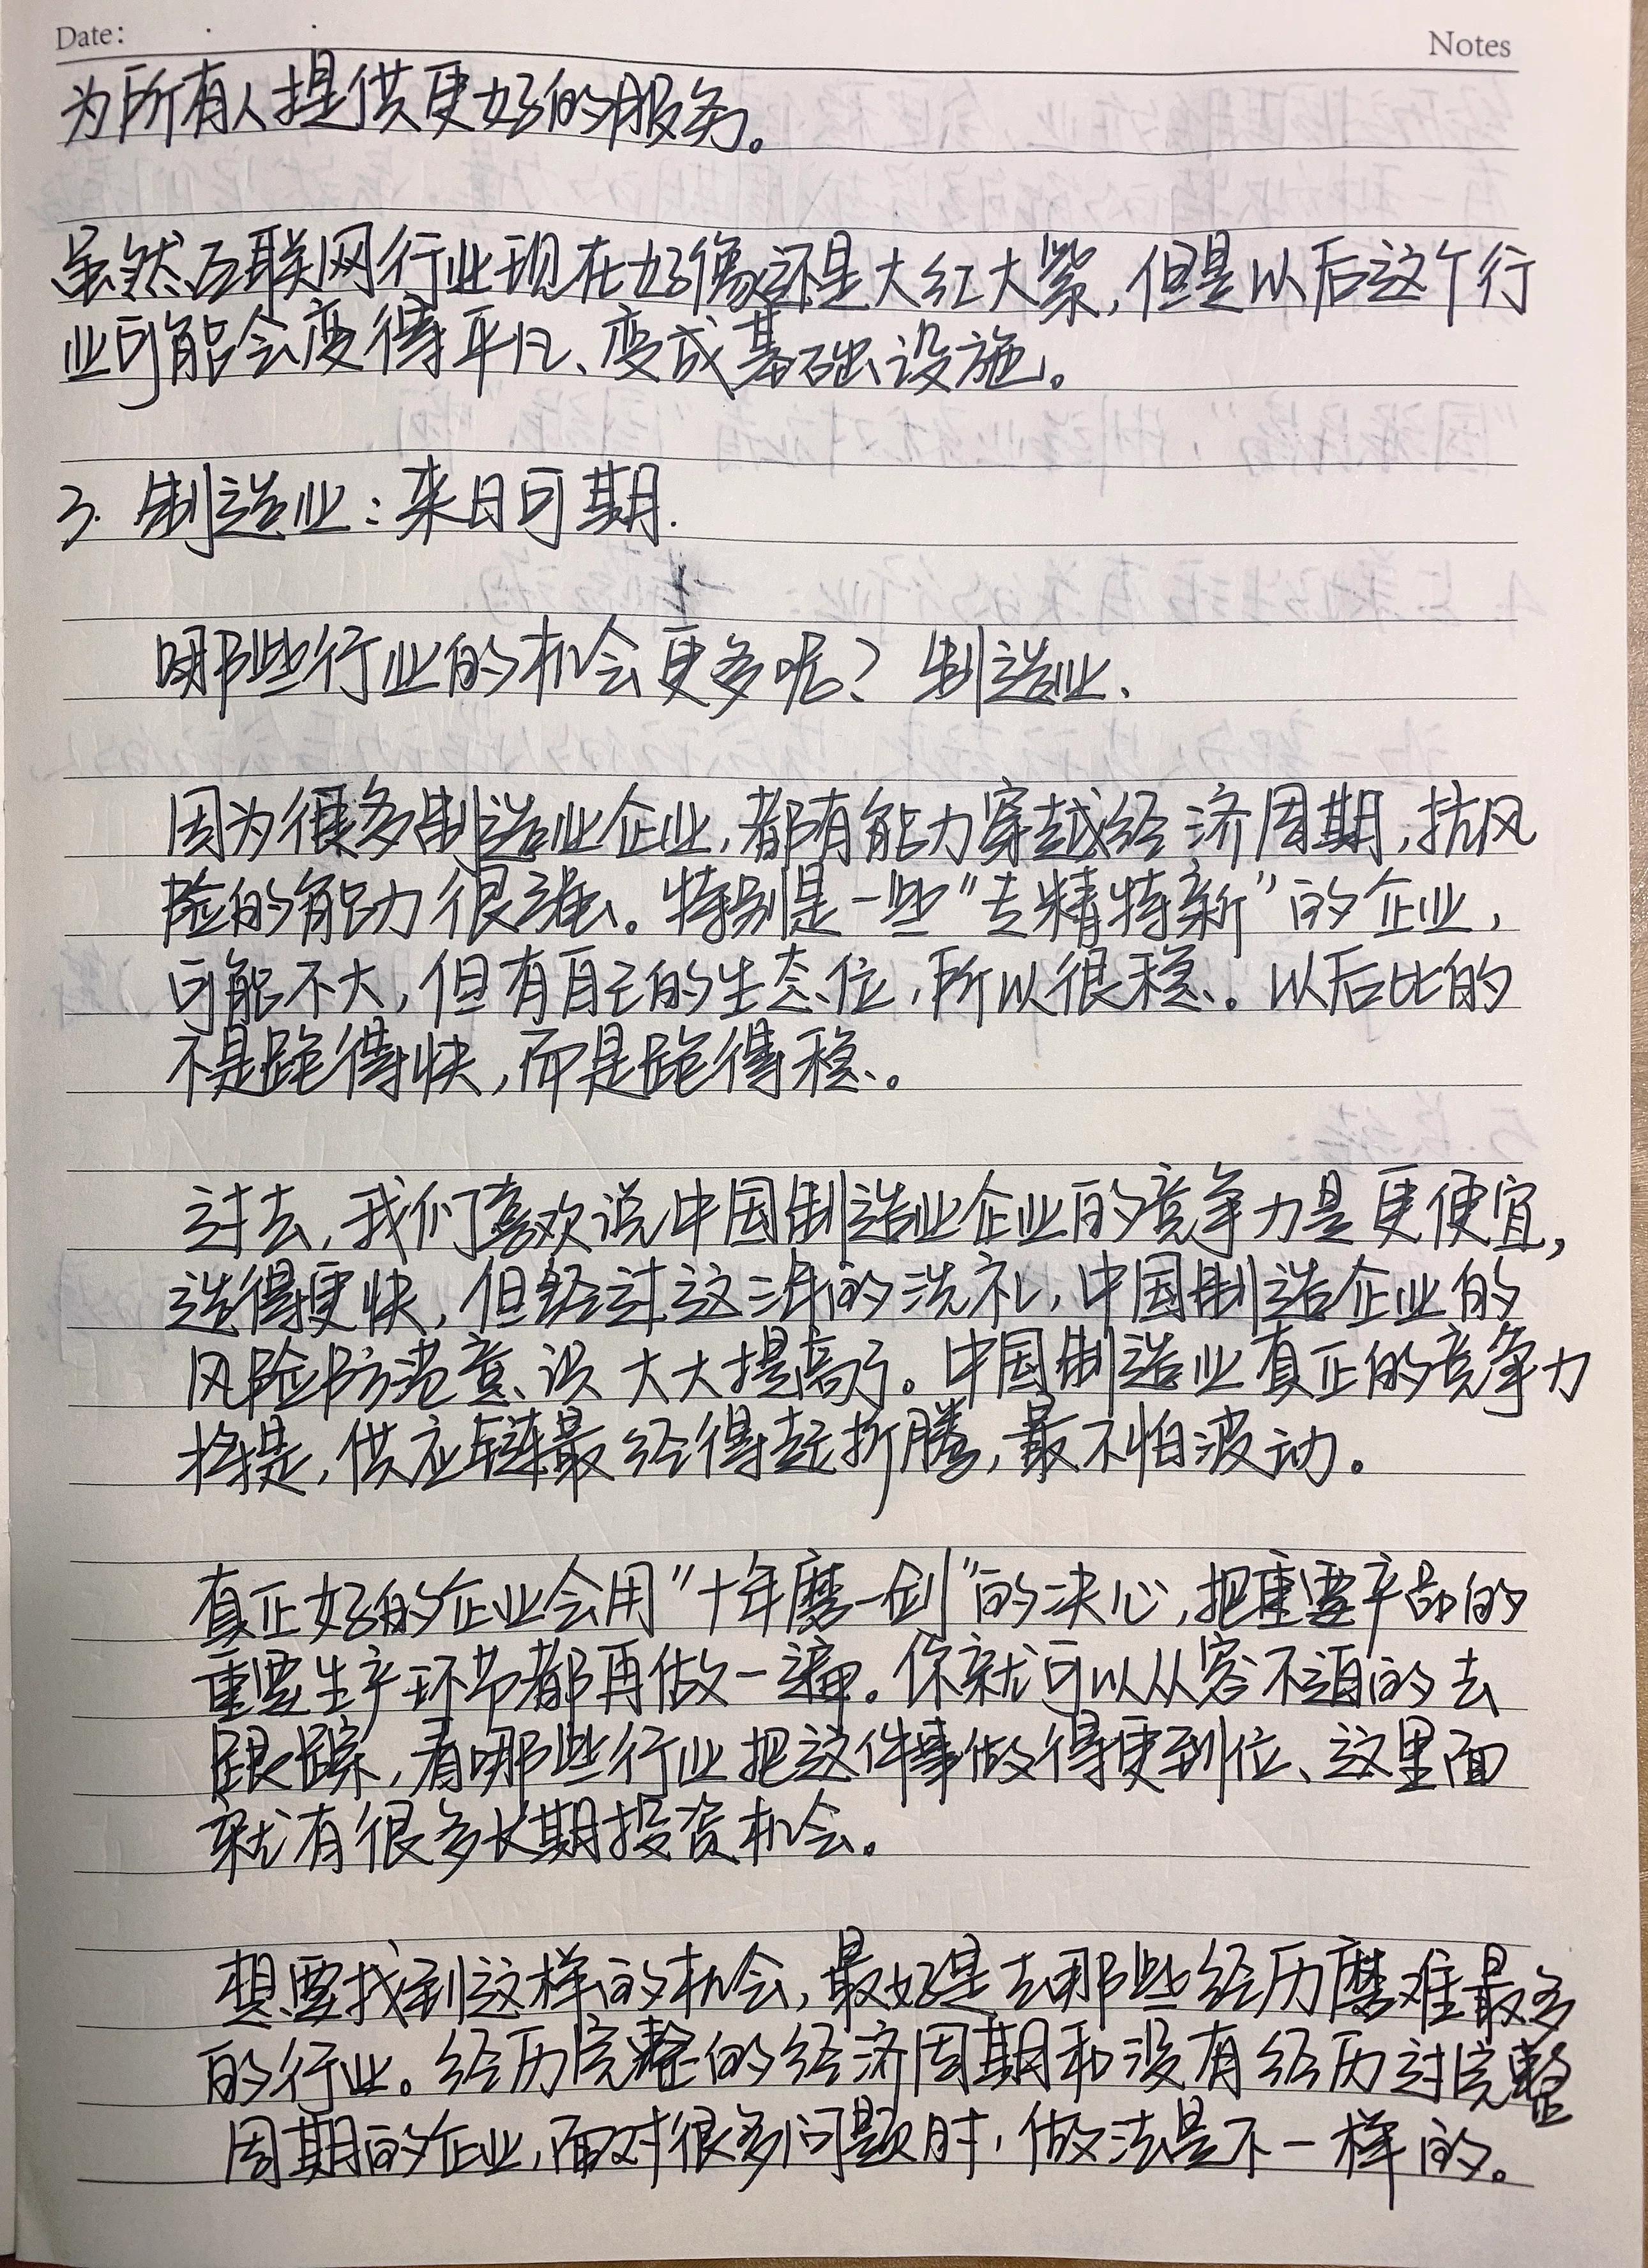 Date:
Notes
为所有人提供更好的服务。
虽然互联网行业现在好像还是大红大紫,但是以后这个行
业可能会变得平凡、变成基础设施。
3. 制造业:来日可期.
哪些行业的机会更多呢?制造业.
因为很多制造业企业,都有能力穿越经济周期,抗风
险的能力很强。特别是一些"专精特新"的企业,
可能不大,但有自己的生态位,所以很稳。以后比的
不是跑得快,而是跑得稳。
过去,我们喜欢说中国制造业企业的竞争力是更便宜,
造得更快,但经过这三年的洗礼,中国制造企业的
风险防范意识大大提高了。中国制造业真正的竞争力
将是,供应链最经得起折腾,最不怕波动。
真正好的企业会用"十年磨一剑"的决心,把重要产品的
重要生产环节都再做一遍。你就可以从容不迫的去
跟踪,看哪些行业把这件事做得更到位、这里面
就有很多长期投资机会。
想要找到这样的机会,最好是去那些经历磨难最多
的行业。经历完整的经济周期和没有经历过完整
周期的企业,面对很多问题时,做法是不一样的。